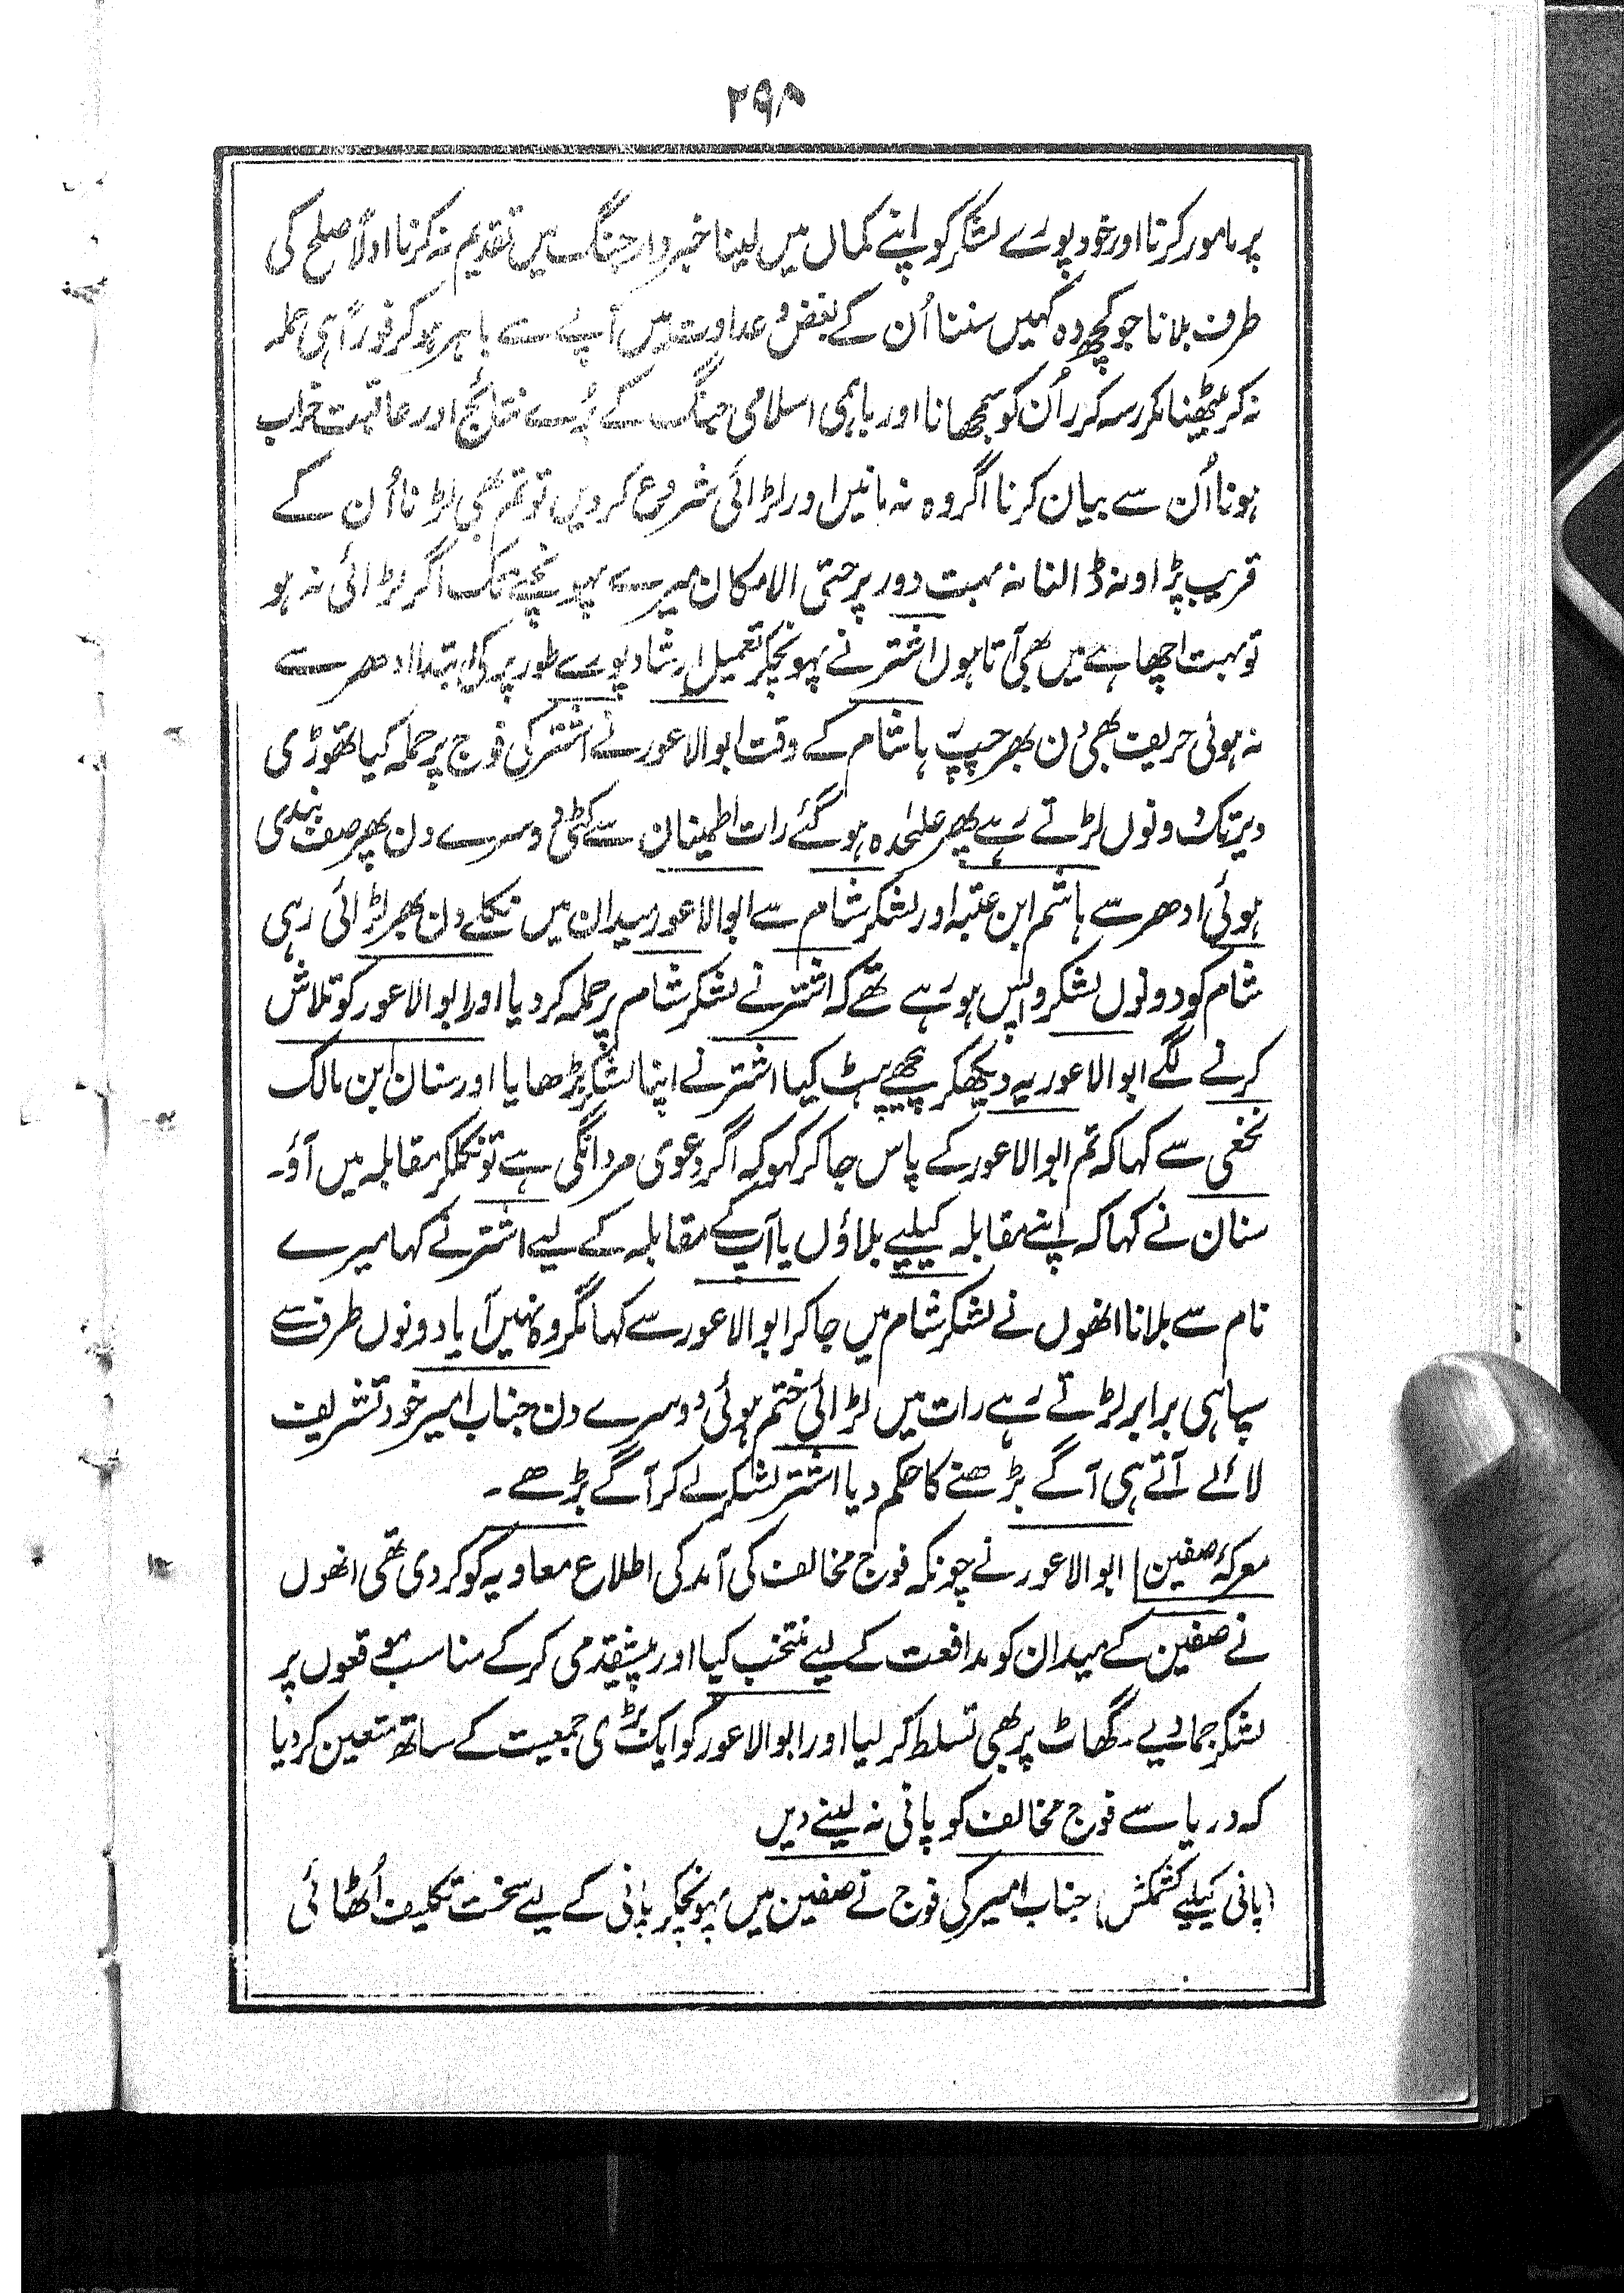 ۲۹۸
پر مامور کرنا اور خود پورے لشکر کو اپنے کمان میں لینا خبردار جنگ میں تقدیم نہ کرنا اولاً صلح کی
طرف بلانا جو کچھ وہ کہیں سننا اُن کے بغض و عداوت میں آپے سے باہر ہو کر فوراً ہی حملہ
نہ کر بیٹھنا مکرر سہ کرر اُن کو سمجھانا اور باہمی اسلامی جنگ کے بُرے نتائج اور عاقبت خراب
ہونا اُن سے بیان کرنا اگر وہ نہ مانیں اور لڑائی شروع کر دیں تو تم بھی لڑنا اُن کے
قریب پڑاو نہ ڈالنا نہ بہت دور پر حتی الامکان میرے پہونچنے تک اگر لڑائی نہ ہو
تو بہت اچھا ہے میں بھی آتا ہوں اشتر نے پہونچکر تعمیل ارشاد پورے طور پر کی ابتدا ادھر سے
نہ ہوئی حریف بھی دن بھر چپ رہا شام کے وقت ابوالاعور نے اشتر کی فوج پر حملہ کیا تھوڑی
دیر تک دونوں لڑتے رہے پھر علیٰحدہ ہو گئے رات اطمینان سے کٹی دوسرے دن پھر صف بندی
ہوئی ادھر سے ہاشم ابن عتبہ اور لشکر شام سے ابوالاعور میدان میں نکلے دن بھر لڑائی رہی
شام کو دونوں لشکر واپس ہو رہے تھے کہ اشتر نے لشکر شام پر حملہ کر دیا اور ابوالاعور کو تلاش
کرنے لگے ابوالاعور یہ دیکھکر پیچھے ہٹ گیا اشتر نے اپنا لشکر بڑھایا اور سنان ابن مالک
نخعی سے کہا کہ تم ابوالاعور کے پاس جا کر کہو کہ اگر دعوی مردانگی ہے تو نکلکر مقابلہ میں آؤ۔
سنان نے کہا کہ اپنے مقابلہ کیلیے بلاؤں یا آپ کے مقابلہ کے لیے اشتر نے کہا میرے
نام سے بلانا انھوں نے لشکر شام میں جا کر ابوالاعور سے کہا مگر وہ نہیں آیا دونوں طرف سے
سپاہی برابر لڑتے رہے رات میں لڑائی ختم ہوئی دوسرے دن جناب امیر خود تشریف
لائے آتے ہی آگے بڑھنے کا حکم دیا اشتر لشکر لے کر آگے بڑھے۔
معرکۂ صفین| ابوالاعور نے چونکہ فوج مخالف کی آمد کی اطلاع معاویہ کو کر دی تھی انھوں
نے صفین کے میدان کو مدافعت کے لیے منتخب کیا اور پیشقدمی کر کے مناسب موقعوں پر
لشکر جما دیے۔ گھاٹ پر بھی تسلط کر لیا اور ابوالاعور کو ایک بڑی جمعیت کے ساتھ متعین کر دیا
کہ دریا سے فوج مخالف کو پانی نہ لینے دیں
(پانی کیلیے کشمکش) جناب امیر کی فوج نے صفین میں پہونچکر پانی کے لیے سخت تکلیف اُٹھائی